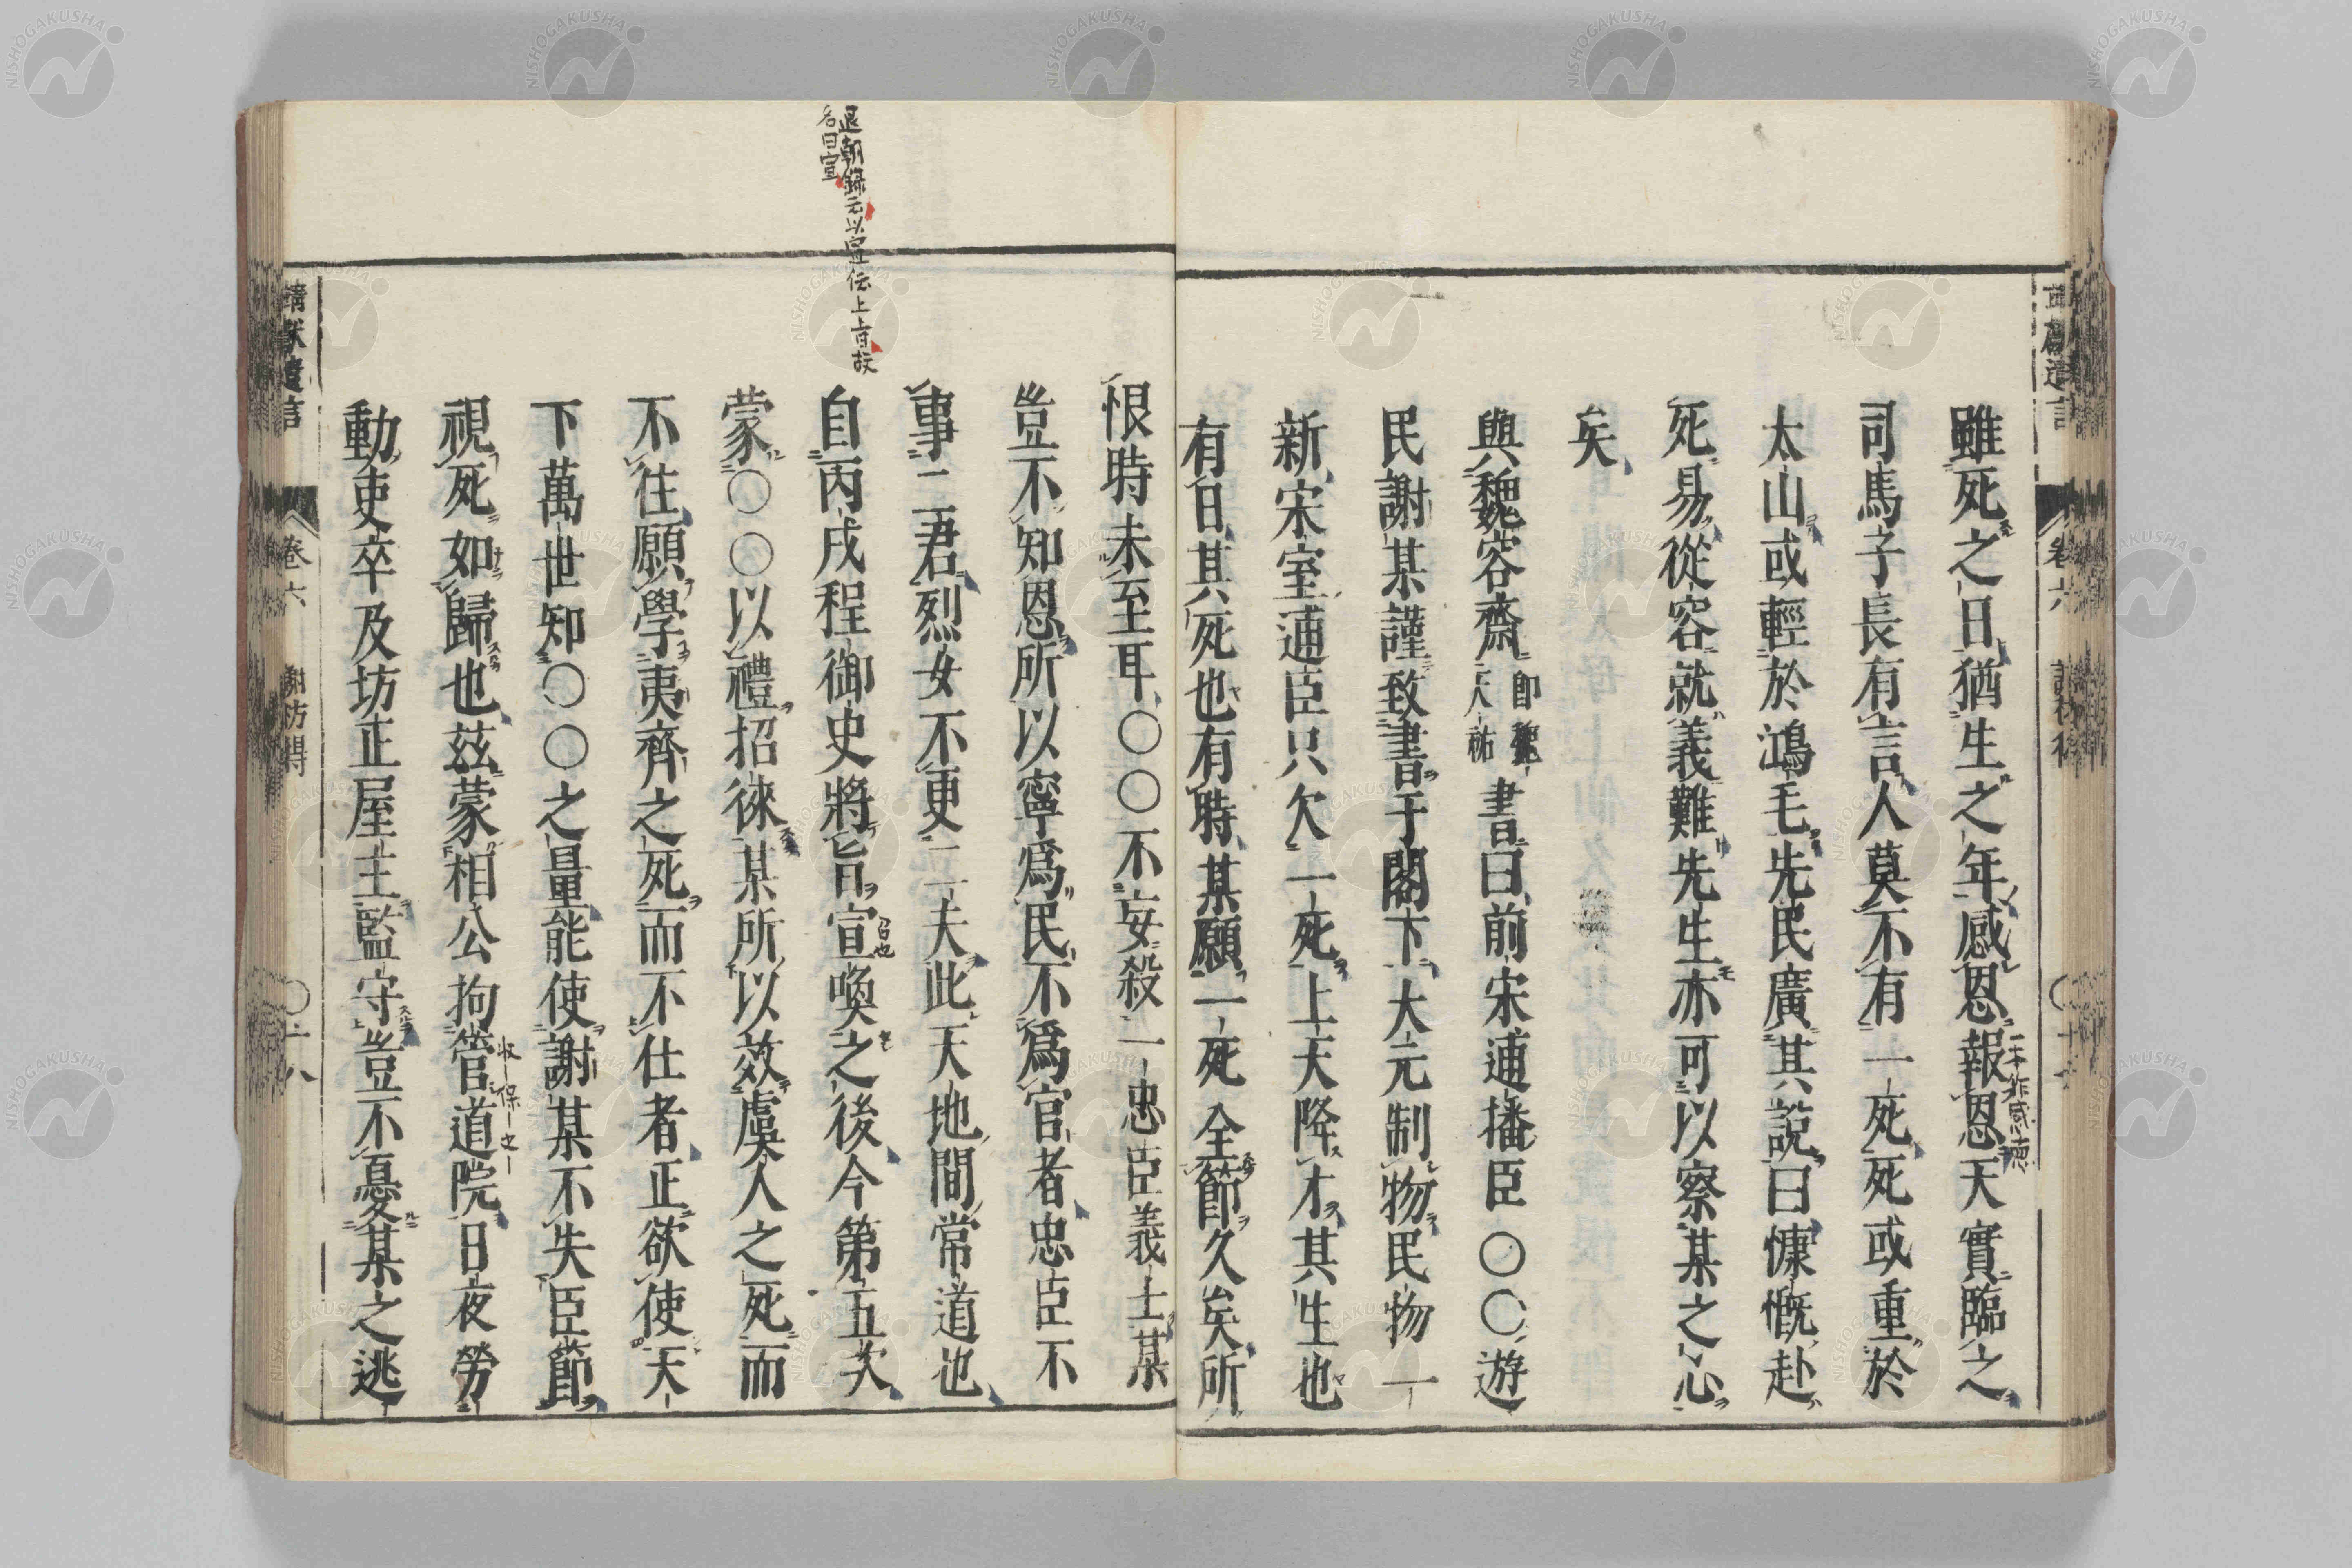 雖死之日猶生之年感恩報恩天實臨之
一本作感德
司馬子長有言人莫不有一死死或重於
太山或輕於鴻毛先民廣其說曰慷慨赴
死易從容就義難先生亦可以察某之心
矣
與魏容齋即魏天祐書曰前宋逋播臣〇〇游
民謝某謹致書于閣下大元制物民物一
新宋室逋臣只欠一死上天降才其生也
有日其死也有時某願一死全節久矣所
恨時未至耳〇〇不妄殺一忠臣義士某
豈不知恩所以寧爲民不爲官者忠臣不
事二君烈女不更二夫此天地間常道也
退朝錄元以宣伝上旨故
名曰宣
自丙戌程御史將旨宣喚之後今第五次
召也
蒙〇〇以禮招徠某所以效虞人之死而
不往願學夷齊之死而不仕者正欲使天
下萬世知〇〇之量能使謝某不失臣節
視死如歸也茲蒙相公拘管道院日夜勞
動吏卒及坊正屋主監守豈不憂某之逃
靖獻遺言 卷六 謝枋得 〇十八